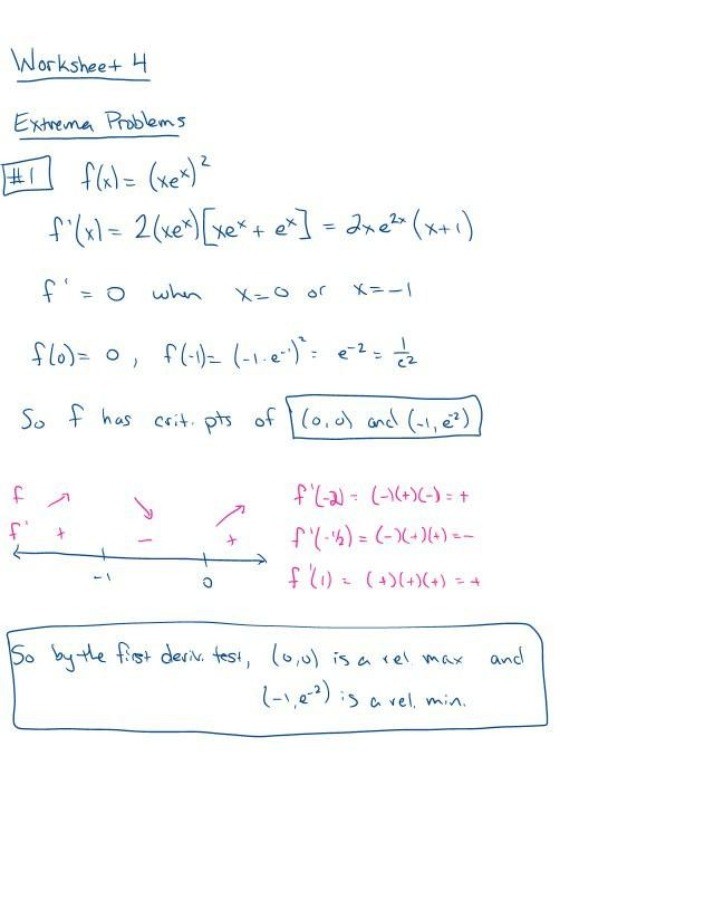 Worksheet 4
Extrema Problems
#1 f(x) = (xeˣ)²
f'(x) = 2(xeˣ)[xeˣ + eˣ] = 2xe²ˣ(x+1)
f' = 0 when x=0 or x=-1
f(0) = 0, f(-1) = (-1·e⁻¹)² = e⁻² = 1/e²
So f has crit. pts of (0,0) and (-1, e⁻²)
f
f' + - +
-1 0
f'(-2) = (-)(+)(-) = +
f'(-½) = (-)(+)(+) = -
f'(1) = (+)(+)(+) = +
So by the first deriv. test, (0,0) is a rel max and
(-1, e⁻²) is a rel. min.